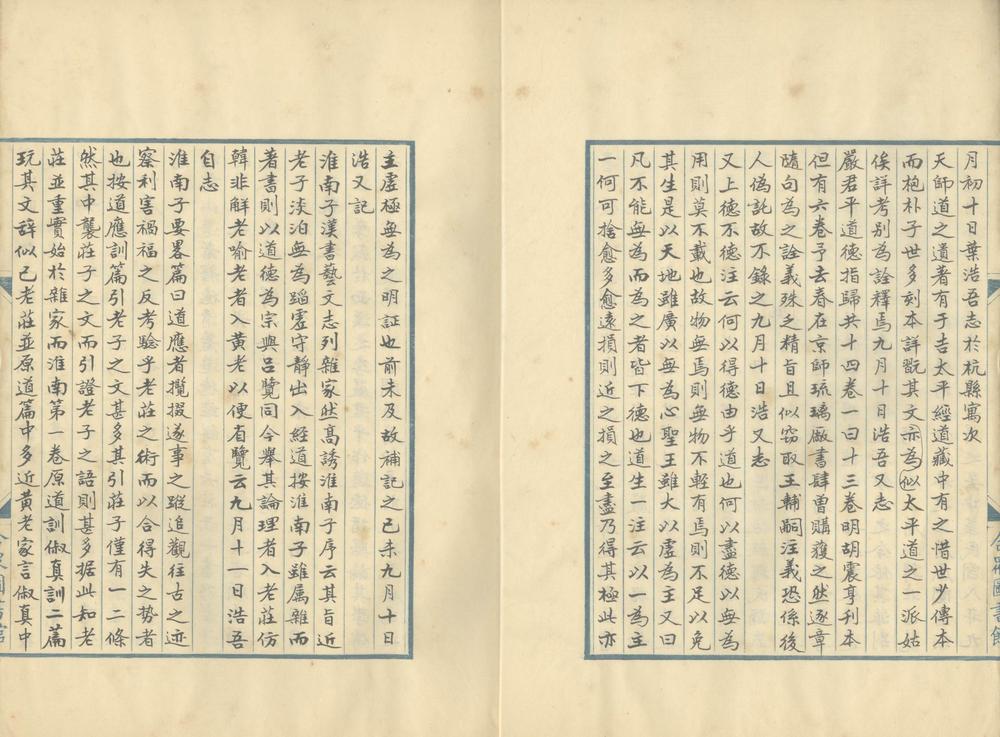 月初十日葉浩吾志於杭縣寓次
天師道之道著有于吉太平經道藏中有之惜世少傳本
而抱朴子世多刻本詳翫其文亦為似太平道之一派姑
俟詳考別為詮釋焉九月十日浩吾又志
嚴君平道德指歸共十四卷一曰十三卷明胡震亨刊本
但有六卷予去春在京師琉璃廠書肆曾購獲之然逐章
隨句為之詮義殊乏精旨且似竊取王輔嗣注義恐係後
人偽託故不錄之九月十日浩又志
又上德不德注云何以得德由乎道也何以盡德以無為
用則莫不載也故物無焉則無物不輕有焉則不足以免
其生是以天地雖廣以無為心聖王雖大以虛為主又曰
凡不能無為而為之者皆下德也道生一注云以一為主
一何可捨愈多愈遠損則近之損之至盡乃得其極此亦
主虛極無為之明証也前未及故補記之己未九月十日
浩又記
淮南子漢書藝文志列雜家然高誘淮南子序云其旨近
老子淡泊無為蹈虛守靜出入經道按淮南子雖屬雜而
著書則以道德為宗與呂覽同今舉其論理者入老莊仿
韓非解老喻老者入黃老以便省覽云九月十一日浩吾
自志
淮南子要畧篇曰道應者攬掇遂事之蹤追觀往古之迹
察利害禍福之反考驗乎老莊之術而以合得失之勢者
也按道應訓篇引老子之文甚多其引莊子僅有一二條
然其中襲莊子之文而引證老子之語則甚多据此知老
莊並重實始於雜家而淮南第一卷原道訓俶真訓二篇
玩其文辭似已老莊並原道篇中多近黃老家言俶真中